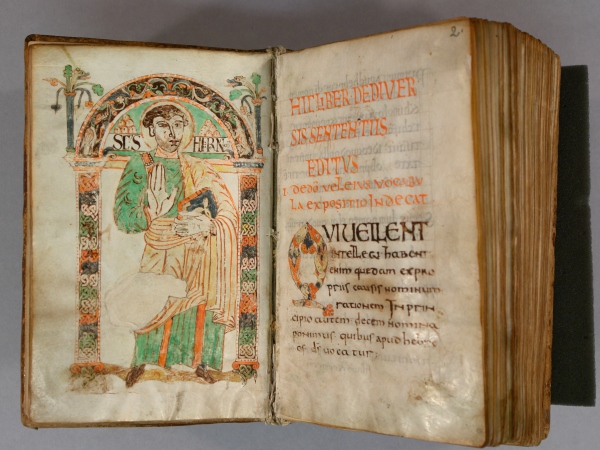 SCS
2.
HIC LIBER DE DIVER
SIS SENTENTIIS
EDITUS
I DE DŌ VEL EIUS VOCABU
LA EXPOSITIO
enim quedam ex pro
priis causis nominum
rationem In prin
cipio autem decem nomina
ponimus quibus apud hebre
os ds uocatus